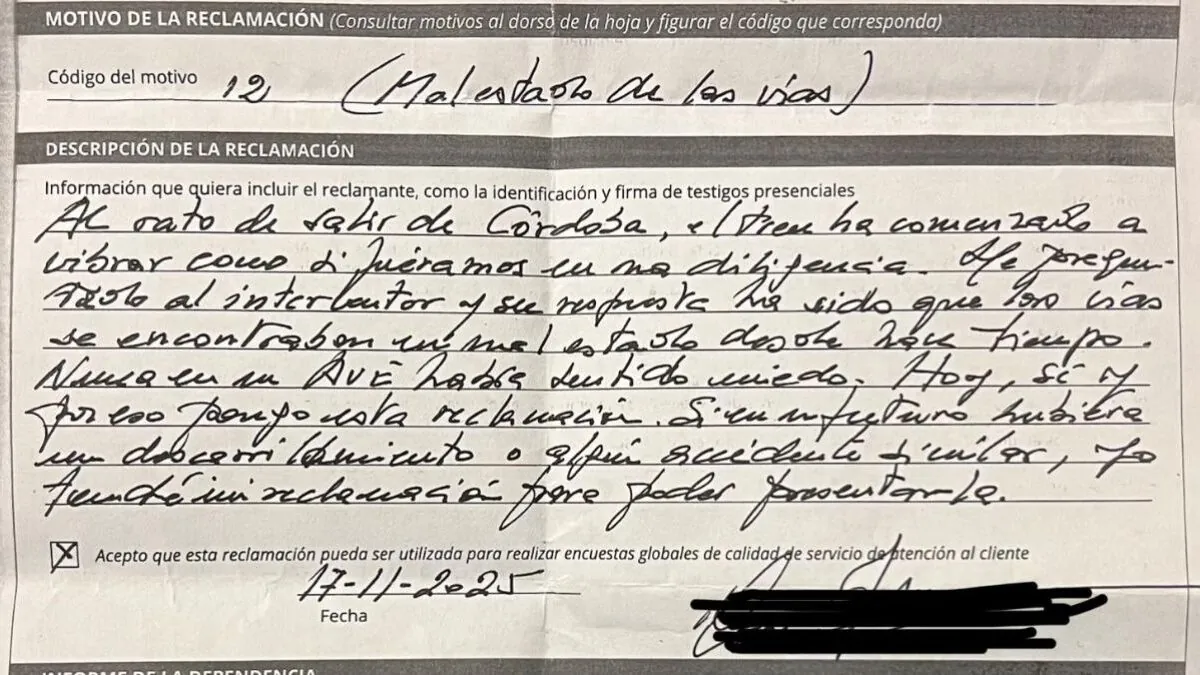 MOTIVO DE LA RECLAMACIÓN (Consultar motivos al dorso de la hoja y figurar el código que corresponda)
Código del motivo 12 (Mal estado de las vías)
DESCRIPCIÓN DE LA RECLAMACIÓN
Información que quiera incluir el reclamante, como la identificación y firma de testigos presenciales
Al rato de salir de Córdoba, el tren ha comenzado a
vibrar como si fuéramos en una diligencia. He pregun-
tado al interventor y su respuesta ha sido que las vías
se encontraban en mal estado desde hace tiempo.
Nunca en un AVE había sentido miedo. Hoy, sí y
por eso pongo esta reclamación. Si en un futuro hubiera
un descarrilamiento o algún accidente similar, yo
tendré mi reclamación para poder presentarla.
X Acepto que esta reclamación pueda ser utilizada para realizar encuestas globales de calidad de servicio de atención al cliente
17-11-2025
Fecha
INFORME DE LA DEPENDENCIA